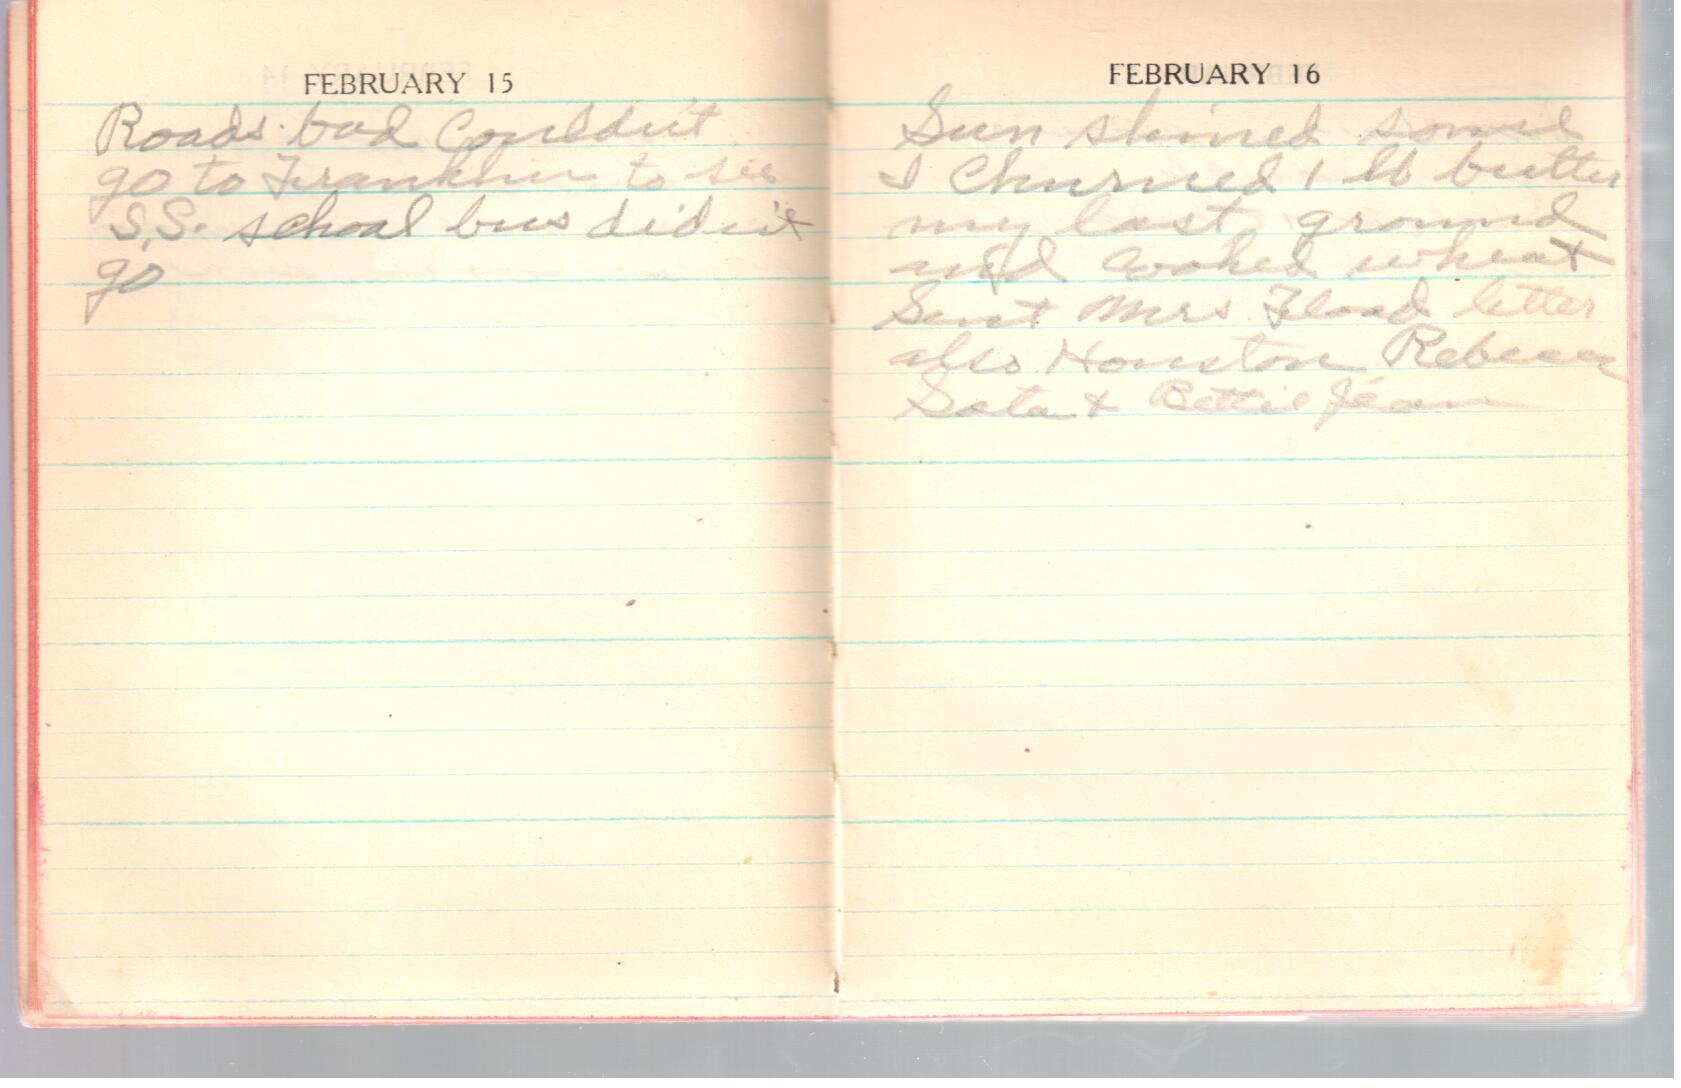 FEBRUARY 15
Roads bad Couldn't
go to Franklin to see
S.S. school bus didn't
go
FEBRUARY 16
Sun shined some
I Churned 1 lb butter
my last ground
and cooked wheat
Sent Mrs Flood letter
also Houston Rebecca
& Bettie Jean